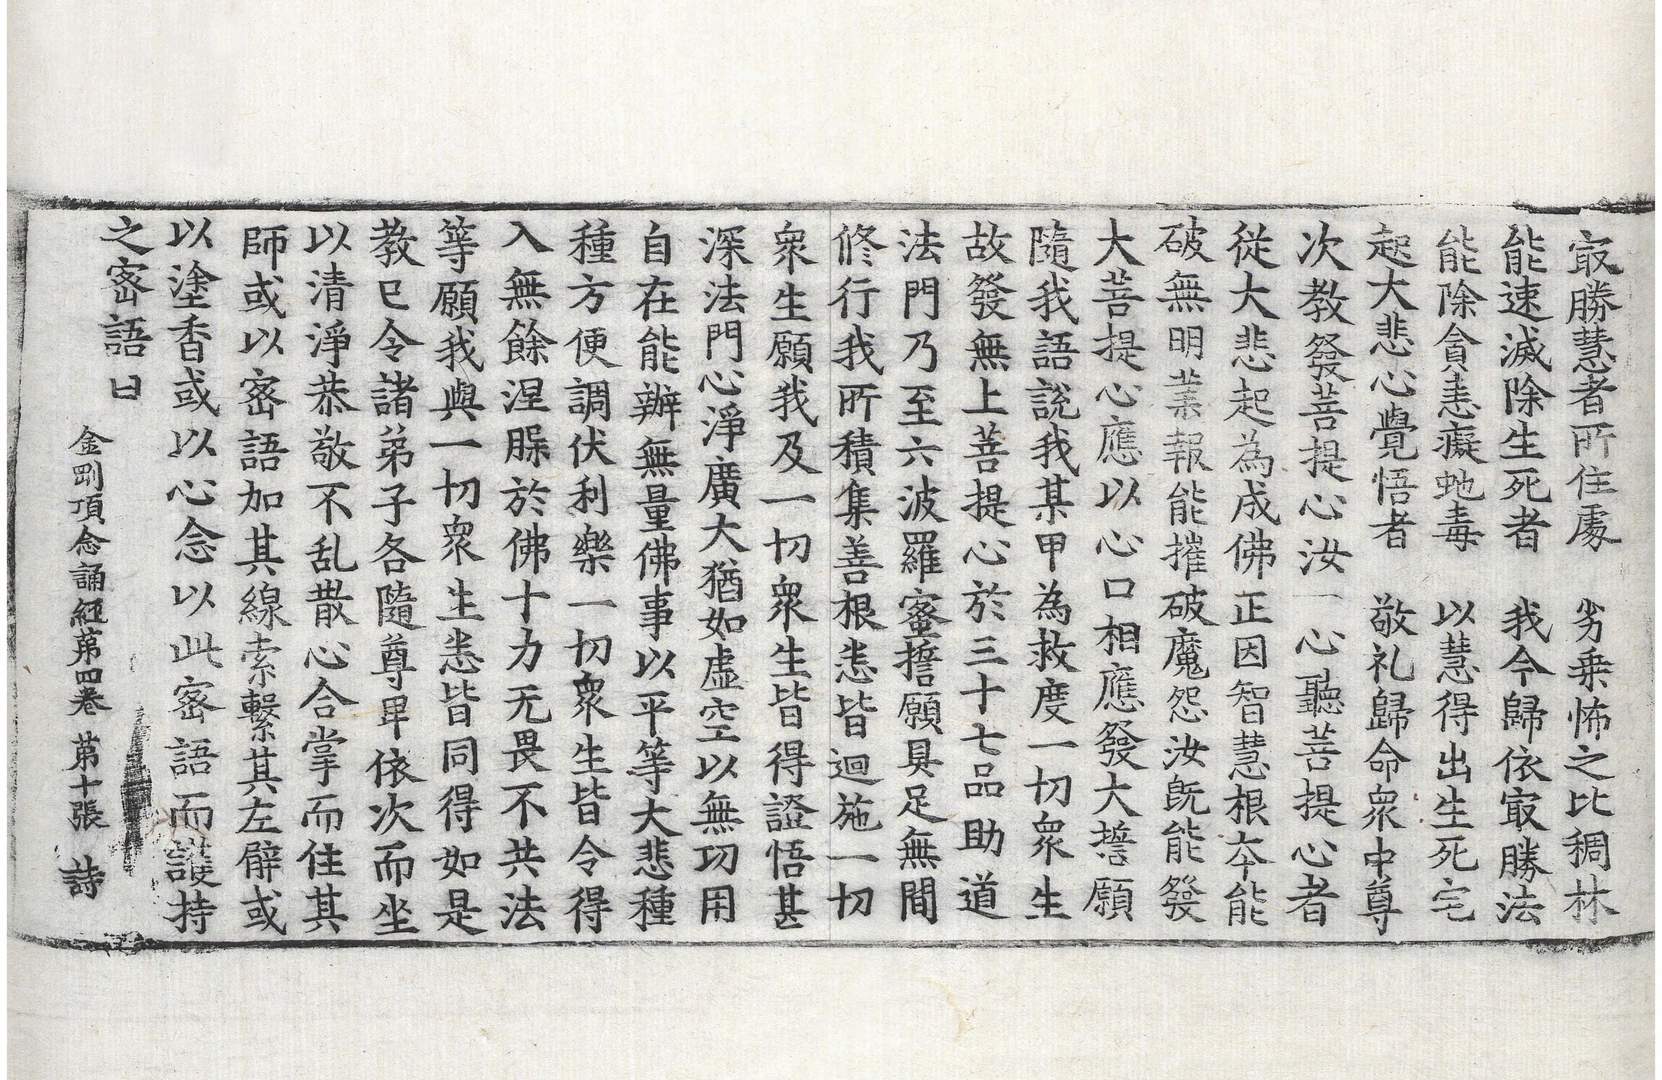 冣勝慧者所住處　劣乗怖之比稠林
能速滅除生死者　我今歸依冣勝法
能除貪恚癡虵毒　以慧得出生死宅
起大悲心覺悟者　敬礼歸命衆中尊
次教發菩提心汝一心聽菩提心者
從大悲起為成佛正因智慧根夲能
破無明業報能摧破魔怨汝旣能發
大菩提心應以心口相應發大擔願
隨我語説我某甲為救度一切衆生
故發無上菩提心於三十七品助道
法門乃至六波羅蜜擔願具足無間
修行我所積集善根悉皆迴施一切
衆生願我及一切衆生皆得證悟甚
深法門心淨廣大猶如虛空以無功用
自在能辦無量佛事以平等大悲種
種方便調伏利樂一切衆生皆令得
入無餘涅腂於佛十力无畏不共法
等願我與一切衆生悉皆同得如是
教已令諸弟子各隨尊卑依次而坐
以清淨恭敬不乱散心合掌而住其
師或以密語加其線索繫其左臂或
以塗香或以心念以此密語而護持
之密語曰
金剛頂念誦經苐四卷　苐十張　詩